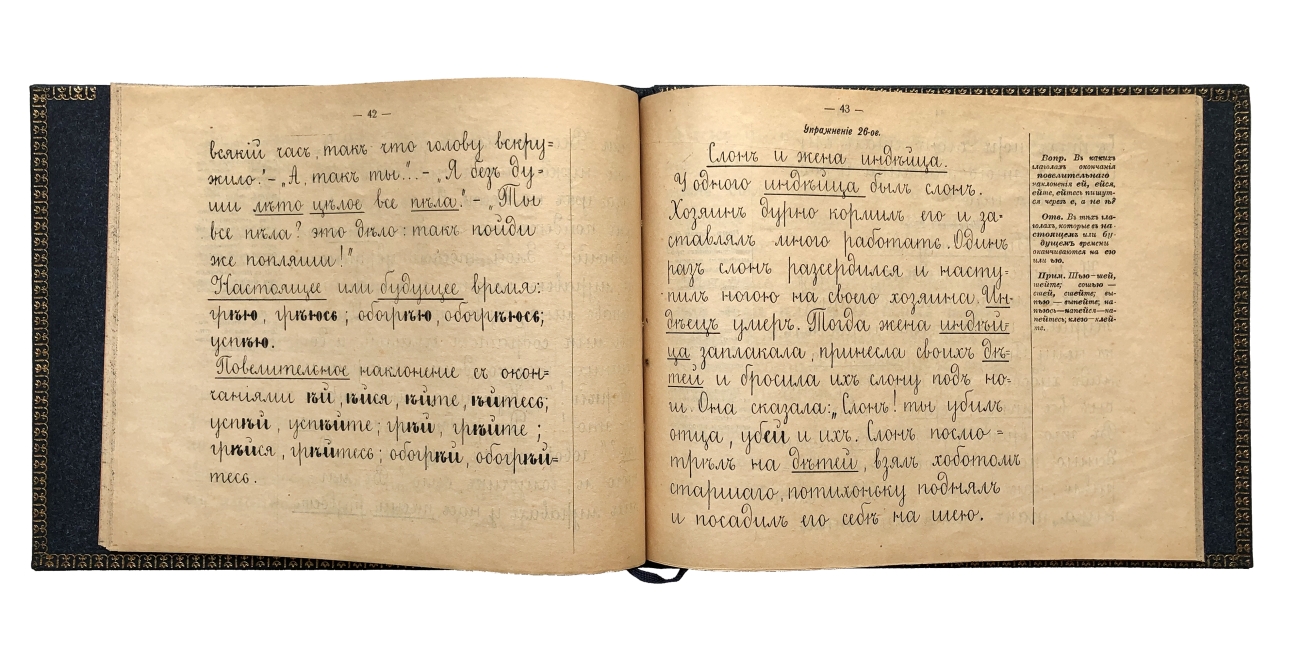 — 42 —
всякій часъ, такъ что голову вскру=
жило."– „А, такъ ты..."– „Я безъ ду-
ши лѣто цѣлое все пѣла."– „Ты
все пѣла? это дѣло: такъ пойди
же попляши!"
Настоящее или будущее время:
грѣю, грѣюсь; обогрѣю, обогрѣюсь;
успѣю.
Повелительное наклоненіе съ окон=
чаніями ѣй, ѣйся, ѣйте, ѣйтесь;
успѣй, успѣйте; грѣй, грѣйте;
грѣйся, грѣйтесь; обогрѣй, обогрѣй=
тесь.
— 43 —
Упражненіе 26-ое.
Слонъ и жена индѣйца.
У одного индѣйца былъ слонъ.
Хозяинъ дурно кормилъ его и за-
ставлялъ много работать. Одинъ
разъ слонъ разсердился и насту-
пилъ ногою на своего хозяина. Ин-
дѣецъ умеръ. Тогда жена индѣй-
ца заплакала, принесла своихъ дѣ-
тей и бросила ихъ слону подъ но-
ги. Она сказала: „Слонъ! ты убилъ
отца, убей и ихъ. Слонъ посмо=
трѣлъ на дѣтей, взялъ хоботомъ
старшаго, потихоньку поднялъ
и посадилъ его себѣ на шею.
Вопр. Въ какихъ
глаголахъ окончанія
повелительнаго
наклоненія ей, ейся,
ейте, ейтесь пишут-
ся черезъ е, а не ѣ?
Отв. Въ тѣхъ гла-
голахъ, которые въ на-
стоящемъ или бу-
дущемъ времени
оканчиваются на ею
или ью.
Прим. Шью—шей,
шейте; сошью —
сшей, сшейте; вы-
пью — выпейте; на-
пьюсь—напейся—на-
пейтесь; клею—клей-
те.